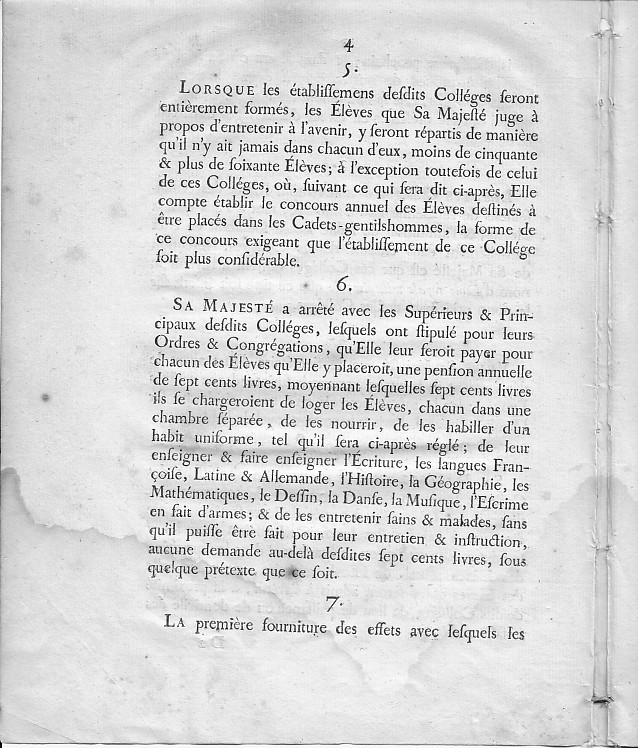 4
5.
LORSQUE les établiſſemens deſdits Colléges ſeront
entièrement formés, les Élèves que Sa Majeſté juge à
propos d'entretenir à l'avenir, y ſeront répartis de manière
qu'il n'y ait jamais dans chacun d'eux, moins de cinquante
& plus de ſoixante Élèves; à l'exception toutefois de celui
de ces Colléges, où, ſuivant ce qui ſera dit ci-après, Elle
compte établir le concours annuel des Élèves deſtinés à
être placés dans les Cadets-gentilshommes, la forme de
ce concours exigeant que l'établiſſement de ce Collége
ſoit plus conſidérable.
6.
SA MAJESTÉ a arrêté avec les Supérieurs & Prin-
cipaux deſdits Colléges, leſquels ont ſtipulé pour leurs
Ordres & Congrégations, qu'Elle leur feroit payer pour
chacun des Élèves qu'Elle y placeroit, une penſion annuelle
de ſept cents livres, moyennant leſquelles ſept cents livres
ils ſe chargeroient de loger les Élèves, chacun dans une
chambre ſéparée, de les nourrir, de les habiller d'un
habit uniforme, tel qu'il ſera ci-après réglé; de leur
enſeigner & faire enſeigner l'Écriture, les langues Fran-
çoiſe, Latine & Allemande, l'Hiſtoire, la Géographie, les
Mathématiques, le Deſſin, la Danſe, la Muſique, l'Eſcrime
en fait d'armes; & de les entretenir ſains & malades, ſans
qu'il puiſſe être fait pour leur entretien & inſtruction,
aucune demande au-delà deſdites ſept cents livres, ſous
quelque prétexte que ce ſoit.
7.
LA première fourniture des effets avec leſquels les